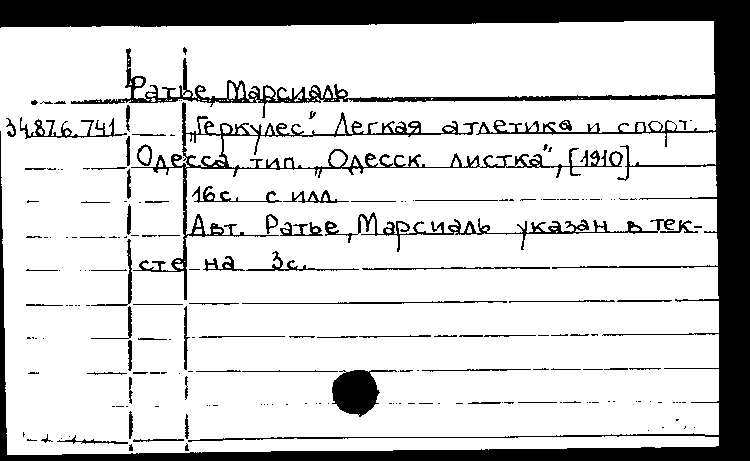 Ратье, Марсиаль
34.87.6.741 „Геркулес“. Легкая атлетика и спорт.
Одесса, тип. „Одесск. листка“, [1910].
16с. с илл.
Авт. Ратье, Марсиаль указан в тек-
сте на 3с.